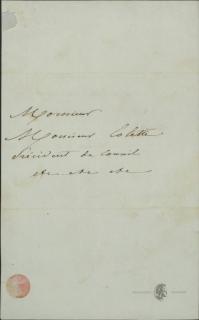 Monsieur
Monsieur Colettis
Président du Conseil
etc etc etc